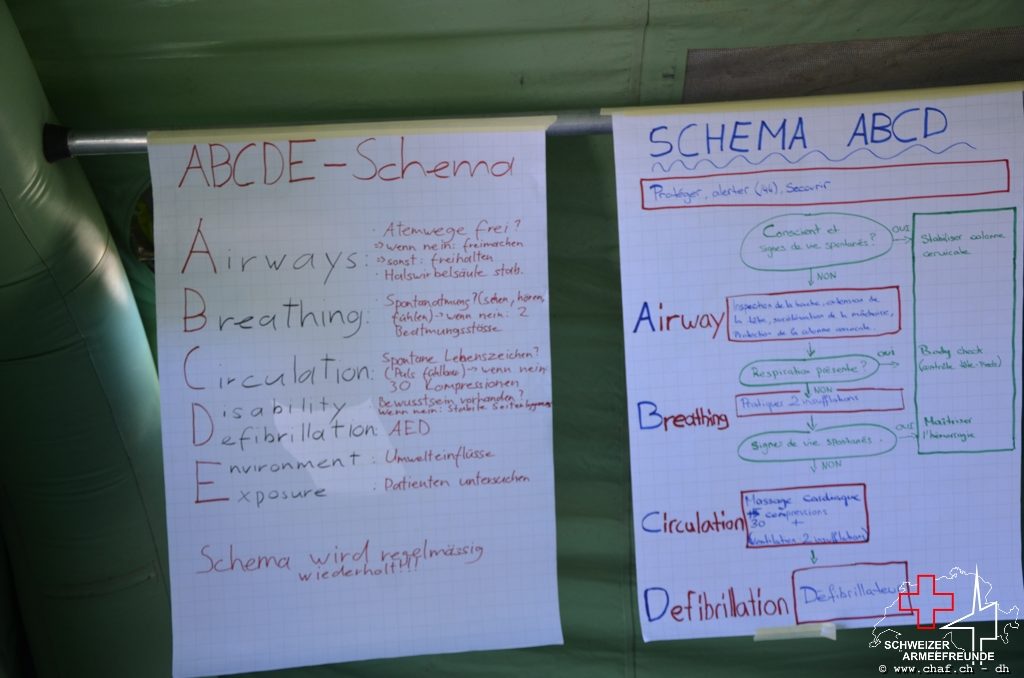 ABCDE-Schema
Airways:
· Atemwege frei?
⇒ wenn nein: freimachen
⇒ sonst: freihalten
· Halswirbelsäule stab.
Breathing:
· Spontanatmung? (sehen, hören,
fühlen) → wenn nein: 2
Beatmungsstösse
Circulation:
Spontane Lebenszeichen?
(Puls fühlbar) → wenn nein:
30 Kompressionen
Disability
Bewusstsein vorhanden?
Wenn nein: Stabile Seitenlagerung
Defibrillation: AED
Environment : Umwelteinflüsse
Exposure : Patienten untersuchen
Schema wird regelmässig
wiederholt!!!
SCHEMA ABCD
Protéger, alerter (144), Secourir
Conscient et
signes de vie spontanés?
OUI
NON
Stabiliser colonne
cervicale
Airway
Inspection de la bouche, extension de
la tête, de la mâchoire,
Protection de la colonne cervicale.
Respiration présente?
OUI
NON
Body check
(contrôle tête-pieds)
Breathing
Pratiquer 2 insufflations
Signes de vie spontanés.
OUI
NON
Maîtriser
l'hémorragie
Circulation
Massage cardiaque
15 compressions
30 +
Ventilation 2 insufflations)
Defibrillation
Défibrillateur
SCHWEIZER
ARMEEFREUNDE
© www.chaf.ch - dh